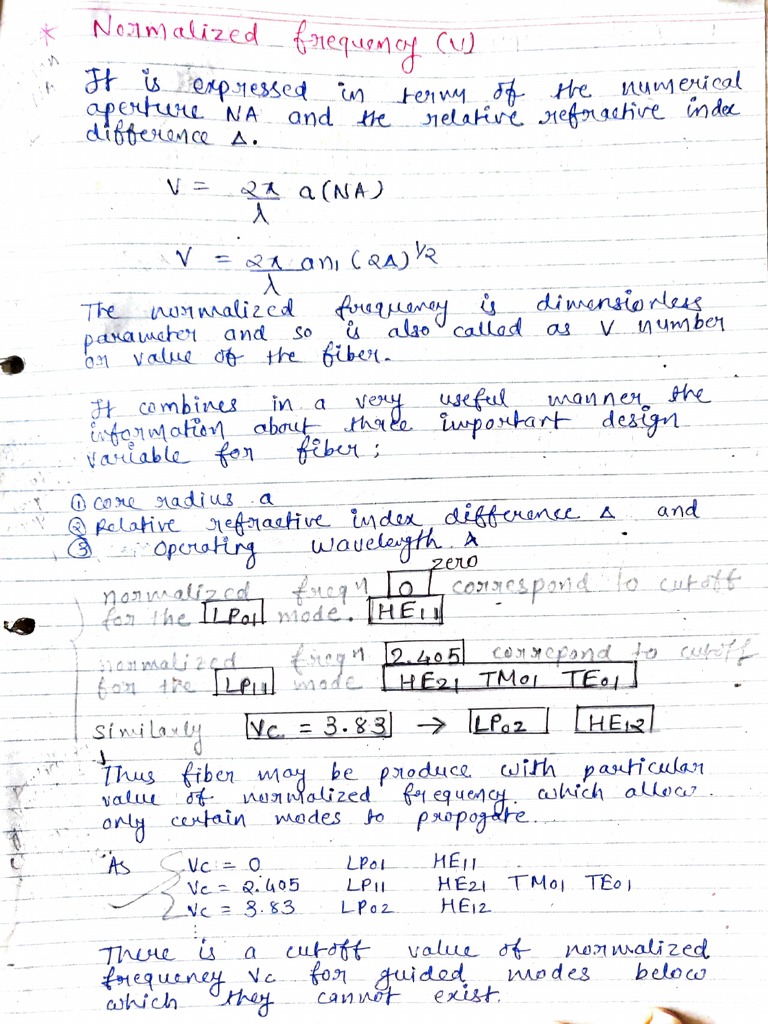 * Normalized frequency (V)
It is expressed in terms of the numerical
aperture NA and the relative refractive index
difference Δ.
V = 2π/λ a(NA)
V = 2π/λ an₁ (2Δ)^1/2
The normalized frequency is dimensionless
parameter and so is also called as V number
or value of the fiber.
It combines in a very useful manner the
information about three important design
variable for fiber :
① core radius a
② Relative refractive index difference Δ and
③ operating wavelength λ
zero
normalized freqn 0 correspond to cutoff
for the LP01 mode. HE11
normalized freqn 2.405 correpond to cutoff
for the LP11 mode HE21 TM01 TE01
similarly Vc = 3.83 → LP02 HE12
Thus fiber may be produce with particular
value of normalized frequency which allow
only certain modes to propogate.
As Vc = 0 LP01 HE11
Vc = 2.405 LP11 HE21 TM01 TE01
Vc = 3.83 LP02 HE12
There is a cutoff value of normalized
frequency Vc for guided modes below
which they cannot exist.